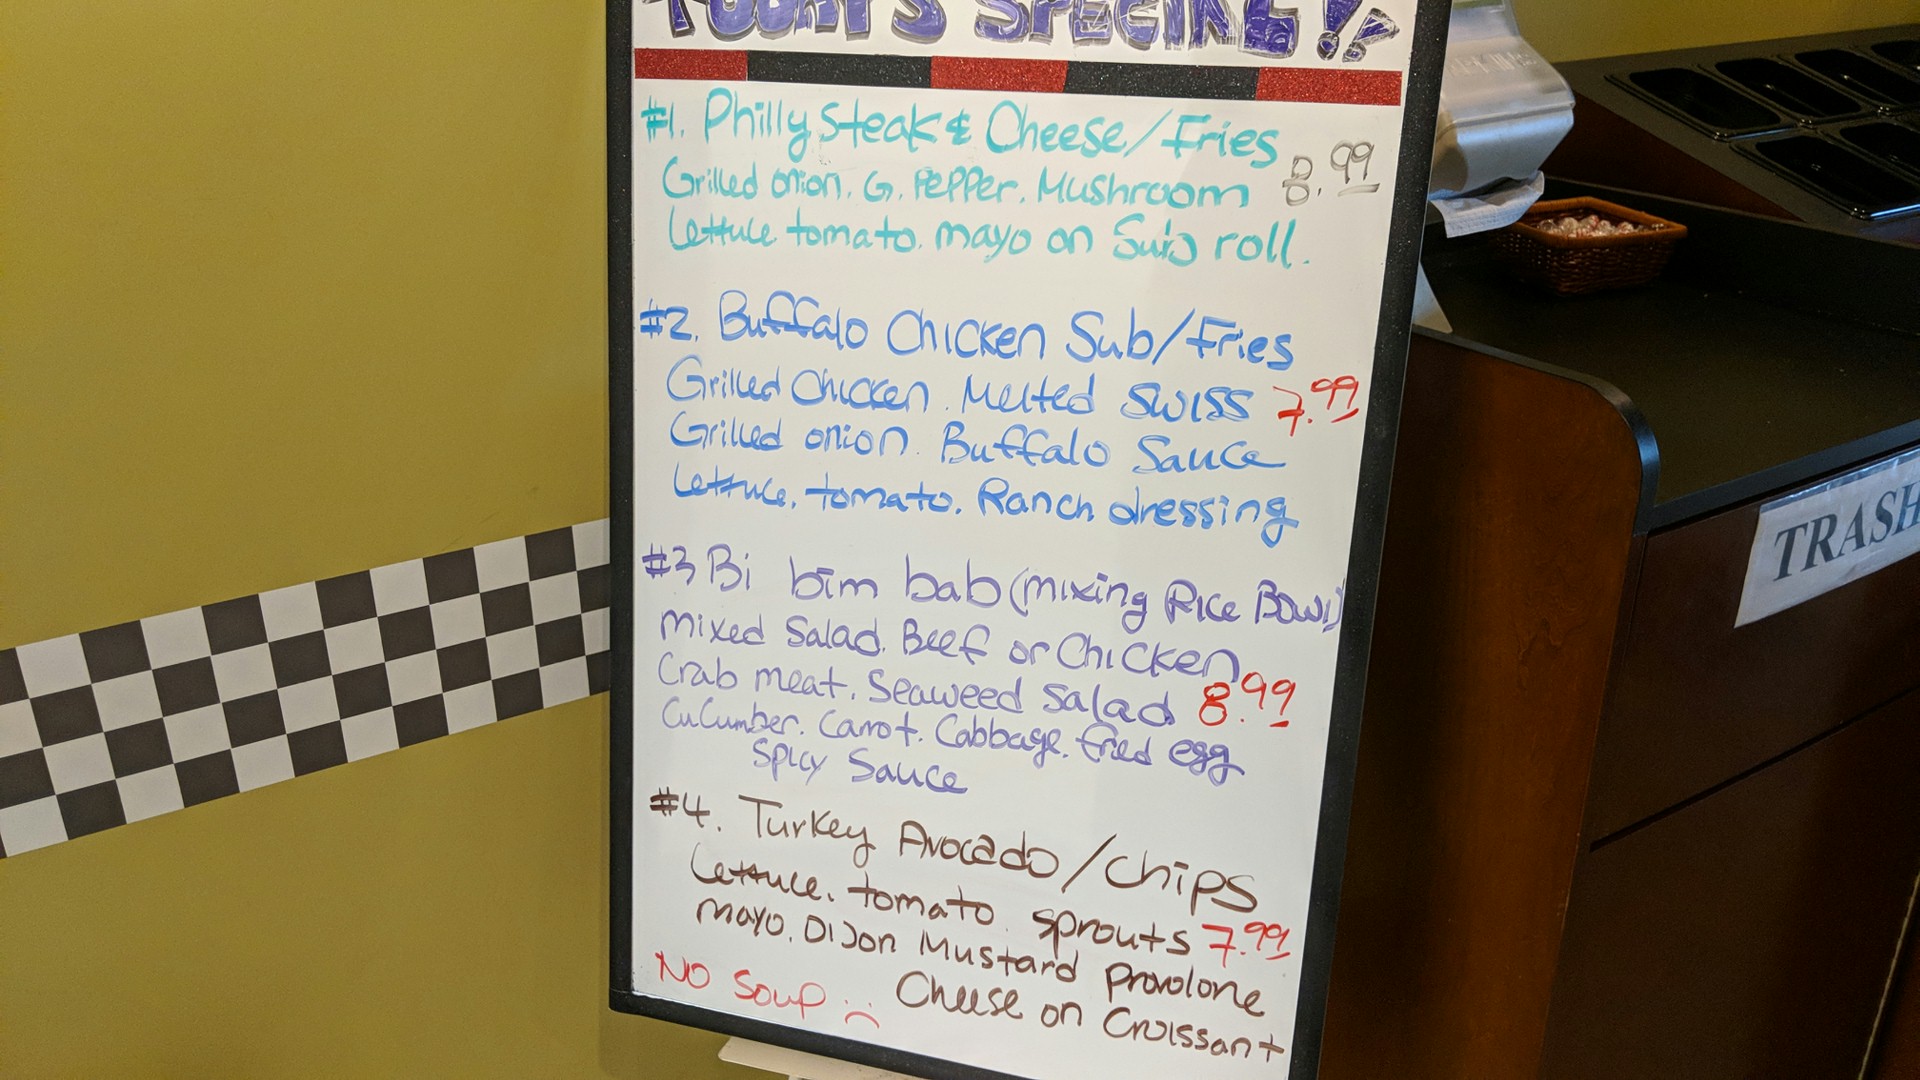 TODAY'S SPECIAL!!
#1. Philly Steak & Cheese/Fries
Grilled onion. G. PePPer. Mushroom 8.99
Lettuce tomato. mayo on Suis roll.
#2. Buffalo Chicken Sub/Fries
Grilled Chicken. Melted SWISS 7.99
Grilled onion. Buffalo Sauce
Lettuce. tomato. Ranch dressing
#3 Bi bim bab (mixing Rice Bowl)
Mixed Salad. Beef or Chicken
Crab meat. Seaweed Salad 8.99
Cucumber. Carrot. Cabbage. fried egg
Spicy Sauce
#4. Turkey Avocado/chips
Lettuce. tomato. sprouts 7.99
mayo. Dijon Mustard Provolone
Cheese on Croissant
NO Soup :(
TRASH